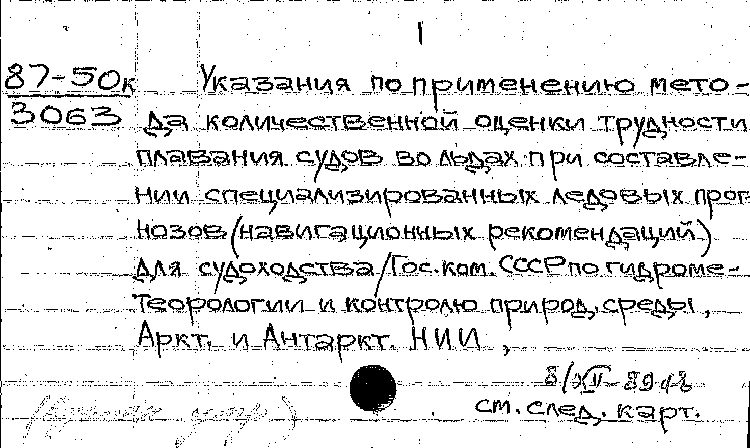 1
87-50к
3063
Указания по применению мето-
да количественной оценки трудности
плавания судов во льдах при составле-
нии специализированных ледовых прог
нозов (навигационных рекомендаций)
для судоходства / Гос. ком. СССР по гидроме-
теорологии и контролю природ. среды,
Аркт. и Антаркт. НИИ,
8/XII-89
см. след. карт.